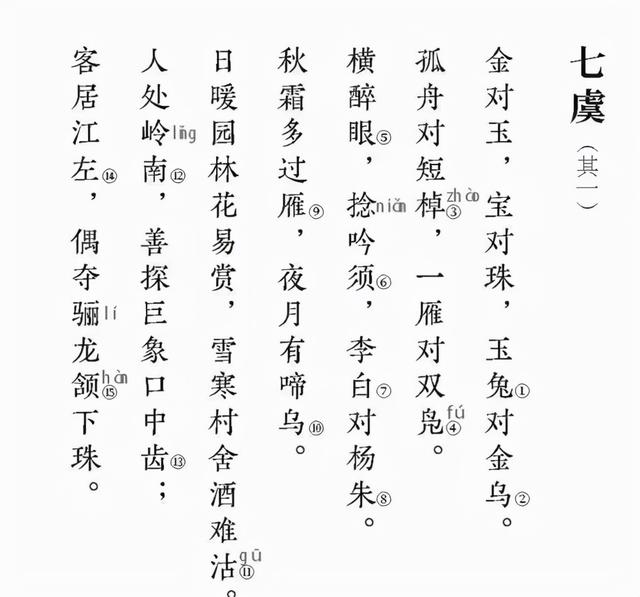 七虞（其一）
金对玉，宝对珠，玉兔①对金乌②。
孤舟对短棹zhào③，一雁对双凫fú④。
横醉眼⑤，捻niǎn吟须⑥，李白⑦对杨朱⑧。
秋霜多过雁⑨，夜月有啼乌⑩。
日暖园林花易赏，雪寒村舍酒难沽gū⑪。
人处岭lǐng南⑫，善探巨象口中齿⑬；
客居江左⑭，偶夺骊lí龙颔hàn⑮下珠。